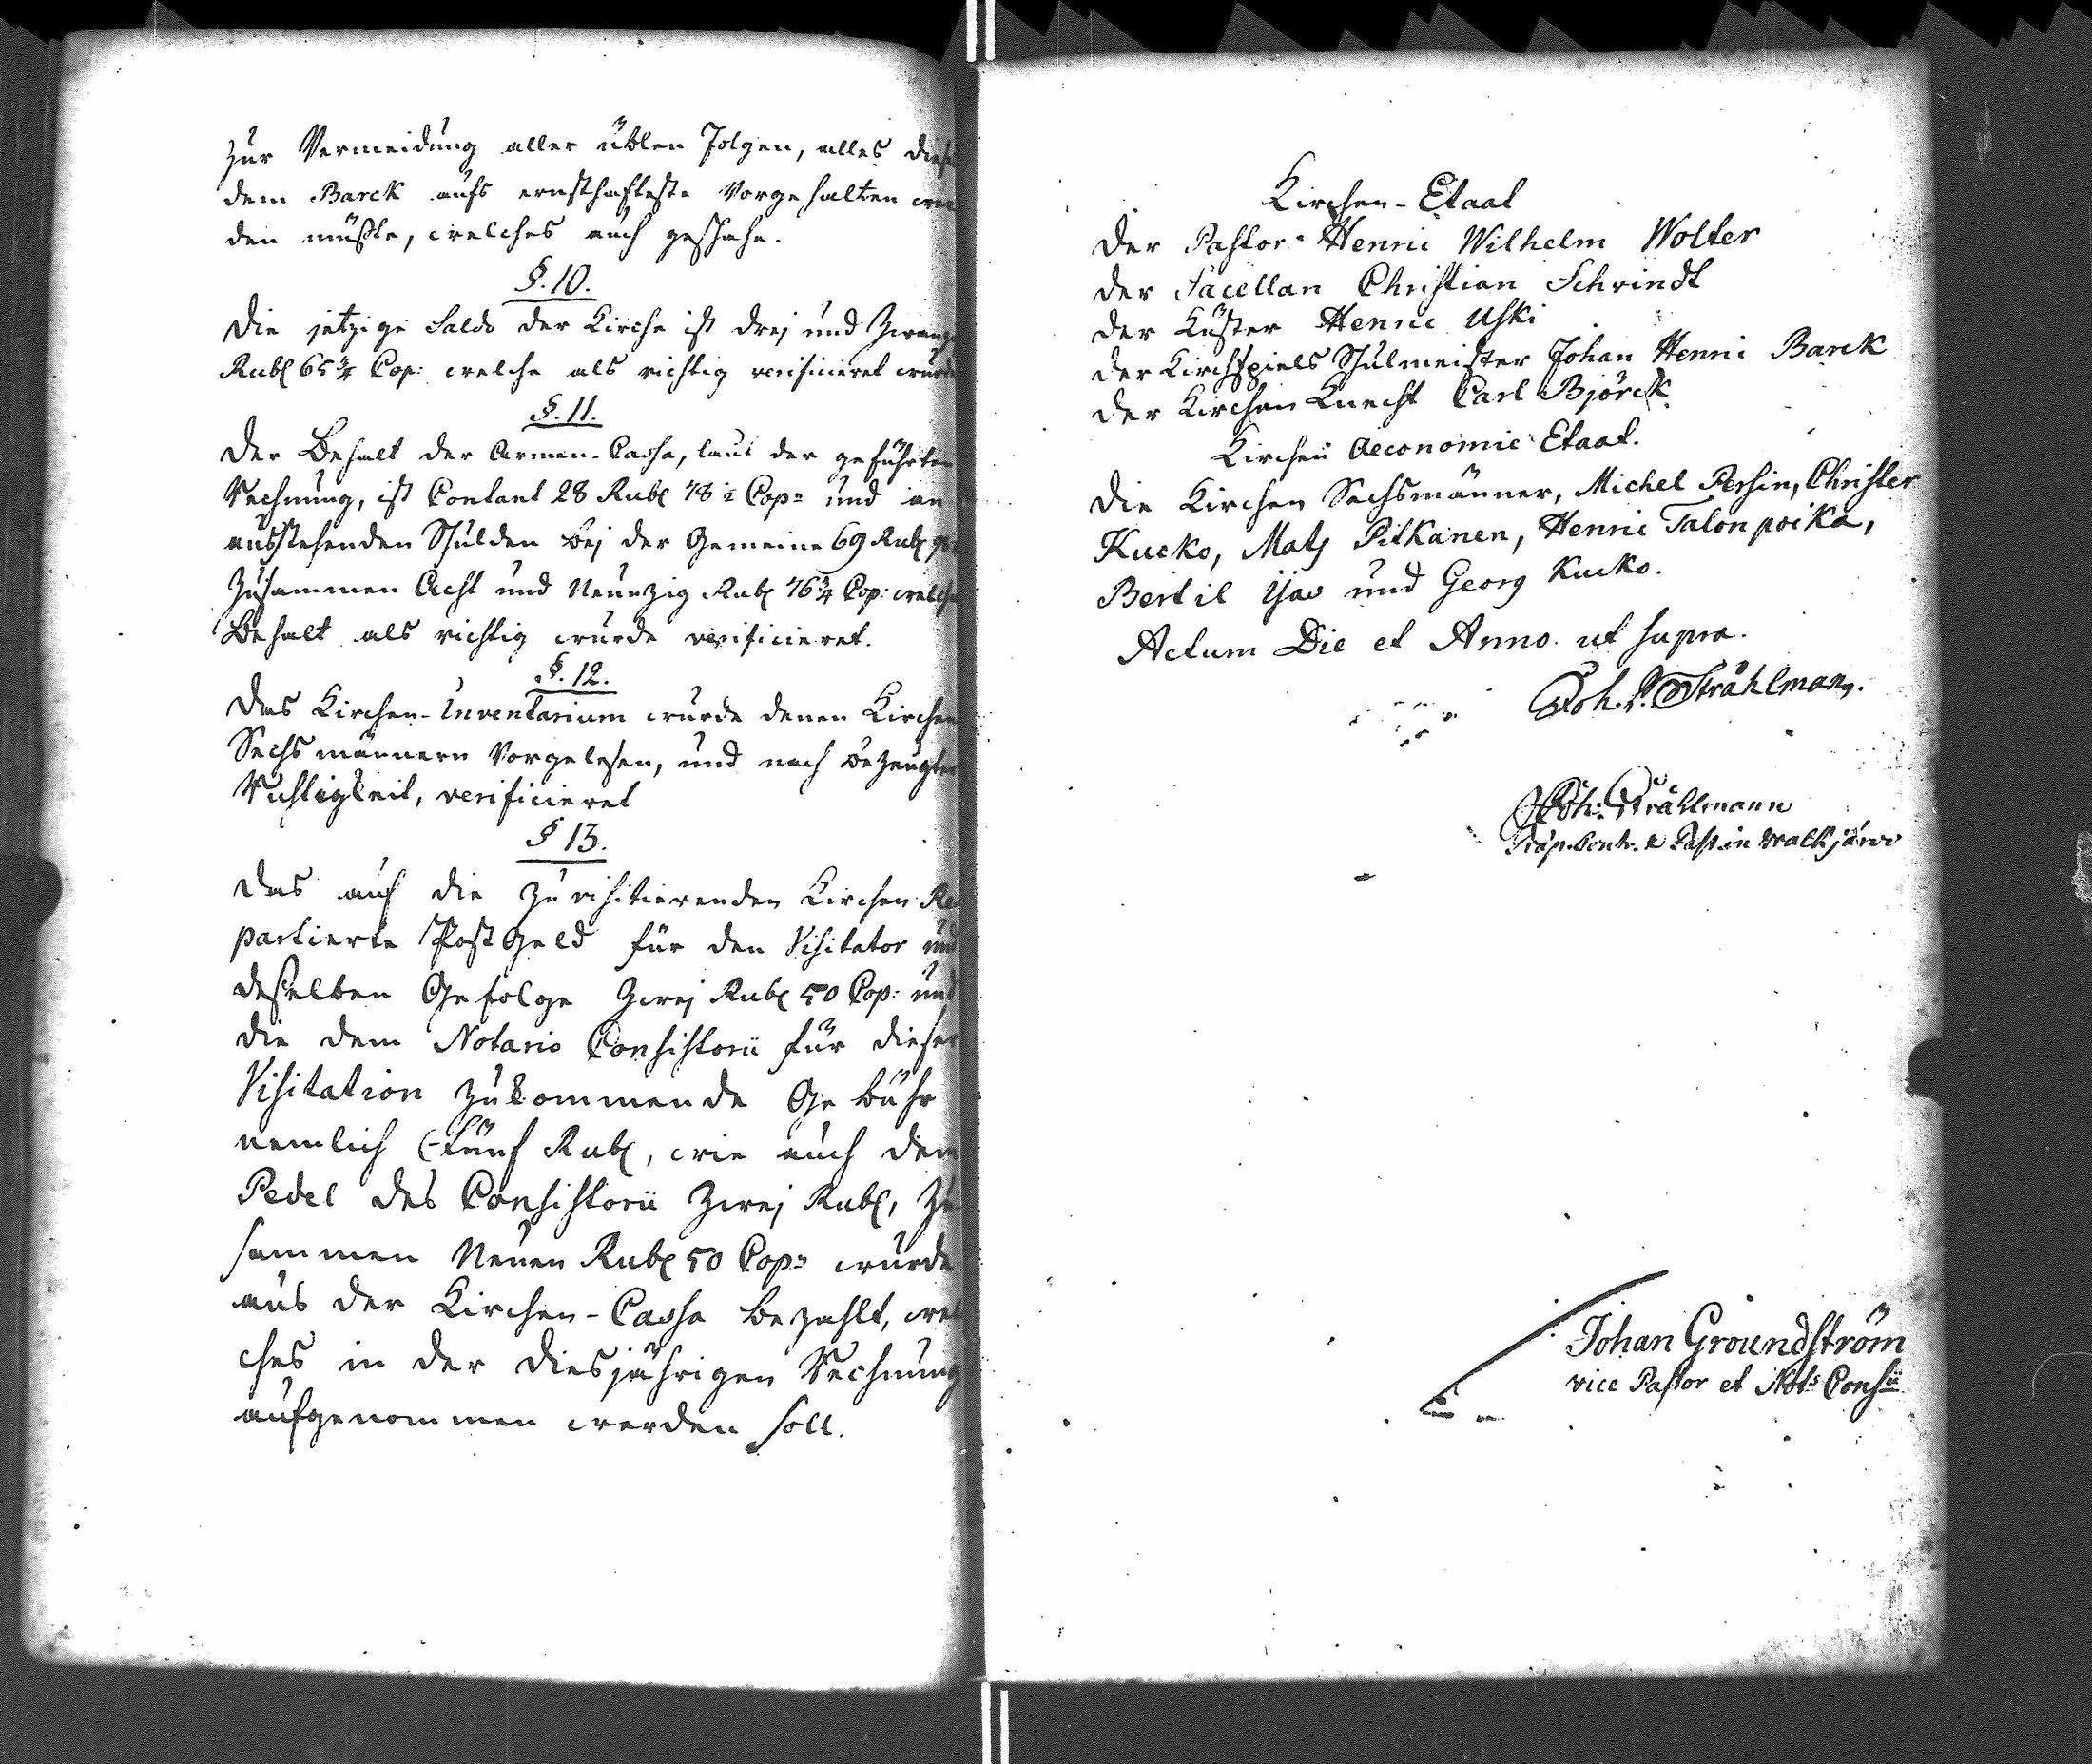 zur Vermeidung aller üblen Folgen, alles diese
dem Barck aufs ernsthafteste Vorgehalten wer
den müßte, welches auch geschahe.
§. 10.
Die jetzige Saldo der Kirche ist drej und Zwanzig
Rubl 65 3/4 Cop: welche als richtig verificieret wurde
§. 11.
Der Behalt der Armen-Cassa, laut der geführten
Rechnung, ist Contant 28 Rubl und an
ausstehenden Schulden bej der Gemeine 69 Rubl
Zusammen Acht und Neunzig Rubl 76 3/4 Cop: welche
Behalt als richtig wurde verificieret.
§. 12.
Das Kirchen-Inventarium wurde denen Kirchen
Sechsmännern Vorgelesen, und nach bezeugter
Richtigkeit, verificieret
§ 13.
Das auf die zu visitierenden Kirchen Re
partierte Postgeld für den Visitator und
deßelben Gefolge Zwej Rubl 50 Cop: und
die dem Notario Consistorii für dieser
Visitation zukommende Gebühr
nemlich Fünf Rubl, wie auch dem
Pedel des Consistorii Zwej Rubl, Zu
sammen Neuen Rubl 50 Cop: wurde
aus der Kirchen-Cassa bezahlt, wel
ches in der diesjährigen Rechnung
aufgenommen werden soll.
Kirchen-Etaat
Der Pastor Henric Wilhelm Wolter
der Sacellan Christian Schvindt
der Küster Henric Uski
der Kirchspiels Schulmeister Johan Henric Barck
der Kirchen Knecht Carl Björck
Kirchen Aeconomie Etaat.
Die Kirchen Sechsmänner, Michel Persin, Christer
Kucko, Mats Pitkänen, Henric Talonpoika,
Bertil und Georg Kucko.
Actum Die et Anno ut supra.
Joh. Stråhlman.
Joh: Stråhlmann
Präp. Cont. & Past. in Walkjärvi
Johan Groundström
vice Pastor et Nots Consii